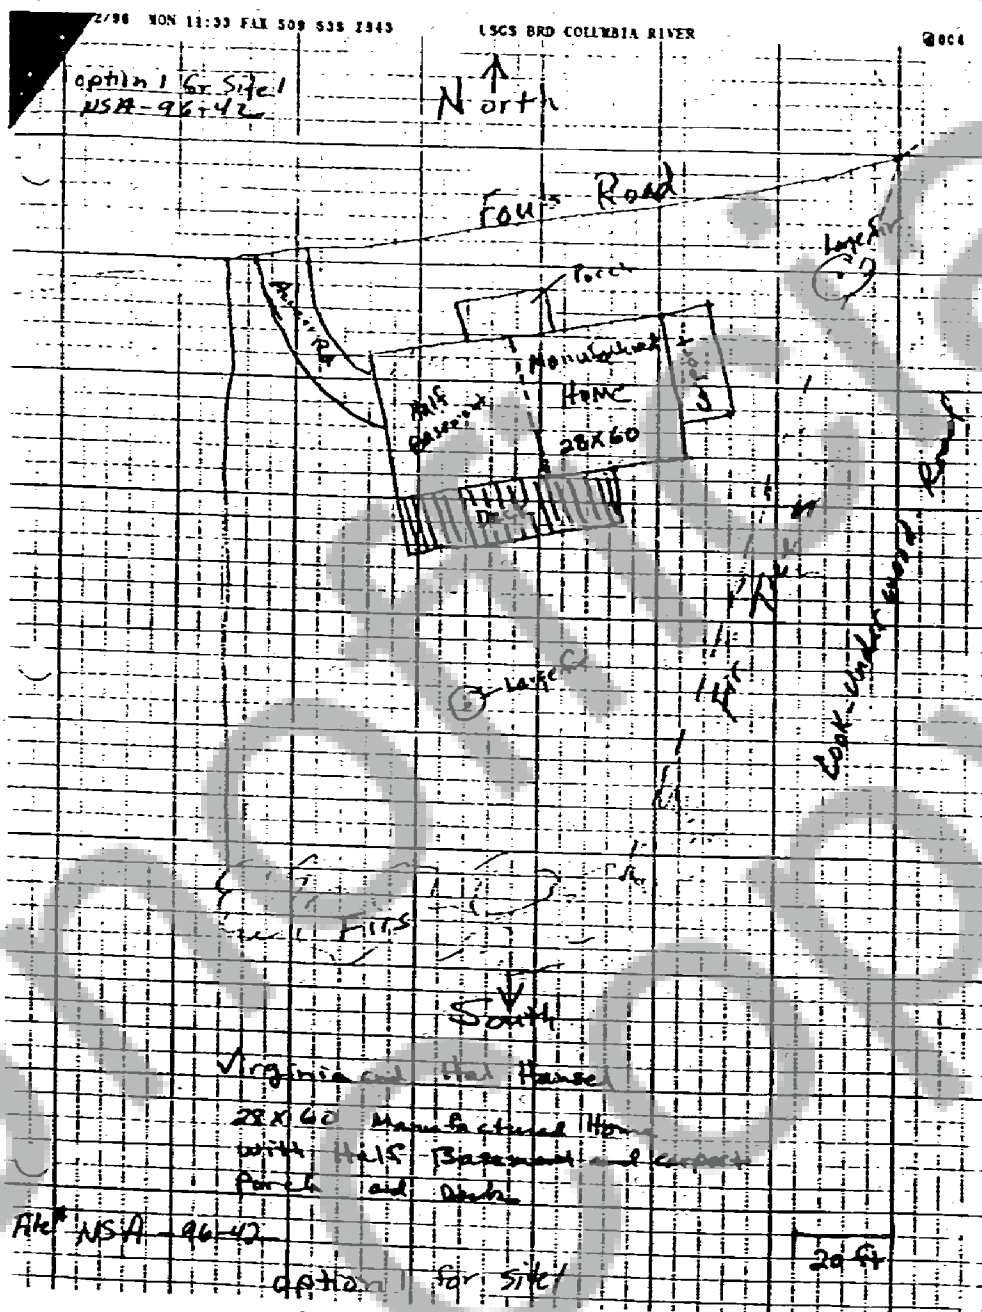 2/96 MON 11:33 FAX 509 538 2843 USGS BRD COLUMBIA RIVER 004
option 1 for Site 1
NSA-96-42
North
Road
Large Fir
Porch
Manufactured
HOME
28X60
Half
Basement
Carport
Deck
Fir Trees
Cook-Underwood
Large
Firs
South
Virginia and Hal Hansel
28X60 Manufactured Home
with Half Basement and carport
Porch and Deck
File# NSA-96-42
20 ft
option 1 for site 1